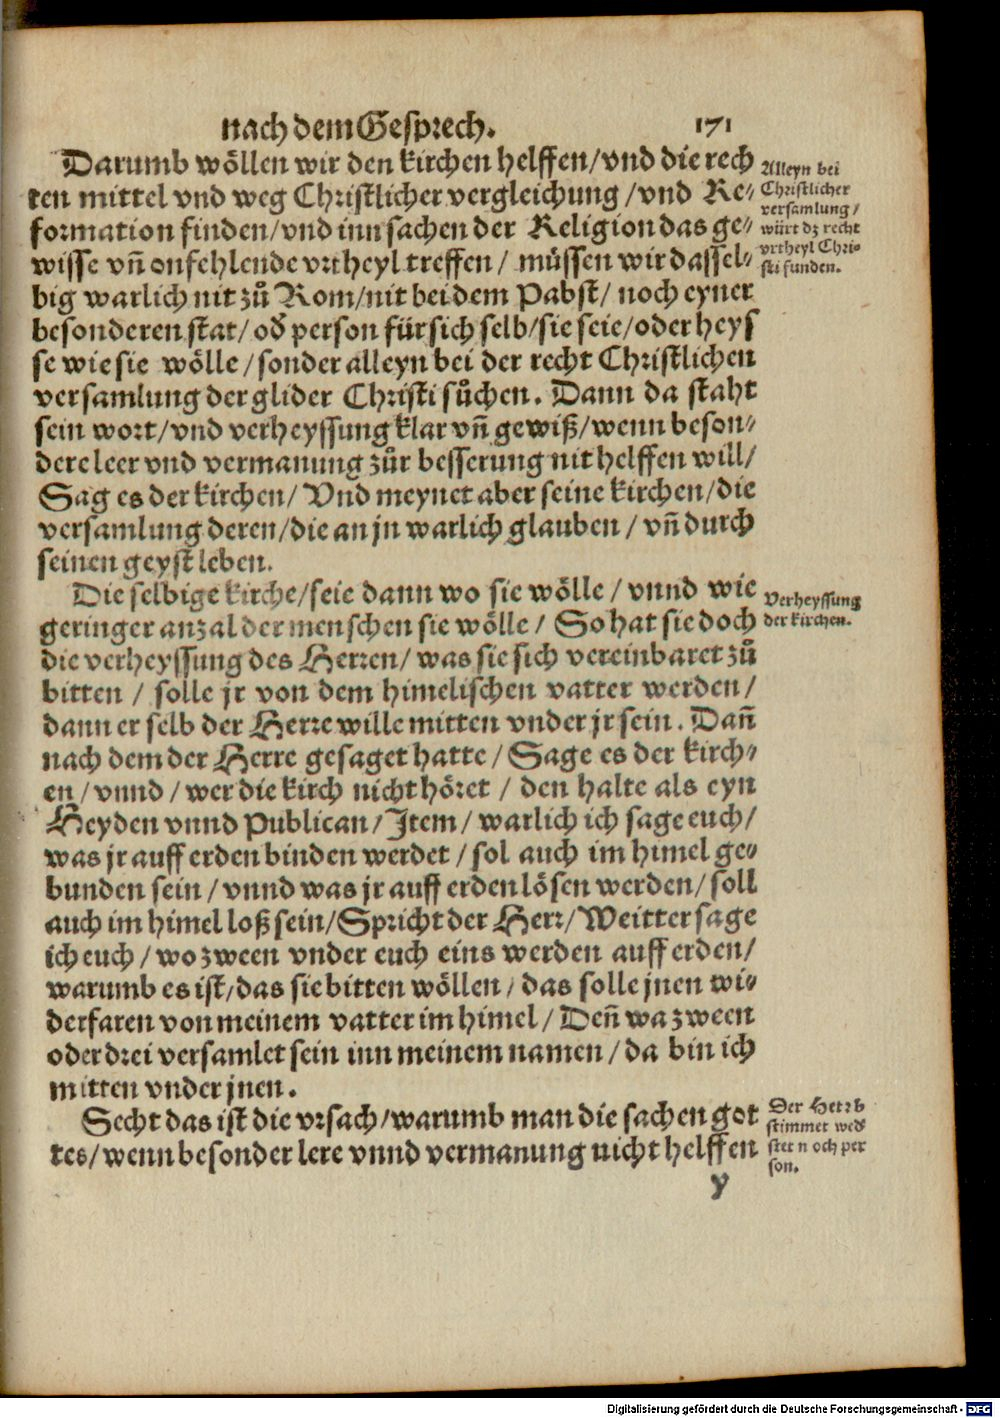 nach dem Gesprech. 171
Darumb wöllen wir den kirchen helffen/vnd die rech
ten mittel vnd weg Christlicher vergleichung/vnd Re-
formation finden/vnd inn sachen der Religion das ge-
wisse vñ onfehlende vrtheyl treffen/ müssen wir dassel-
big warlich nit zů Rom/nit bei dem Pabst/ noch eyner
besonderen stat/ oď person für sich selb/sie seie/oder heys
se wie sie wölle/sonder alleyn bei der recht Christlichen
versamlung der glider Christi sůchen. Dann da staht
sein wort/vnd verheyssung klar vñ gewiß/wenn beson-
dere leer vnd vermanung zůr besserung nit helffen will/
Sag es der kirchen/ Vnd meynet aber seine kirchen/die
versamlung deren/die an jn warlich glauben/ vñ durch
seinen geyst leben.
Alleyn bei
Christlicher
versamlung/
würt dz recht
vrtheyl Chri-
sti funden.
Die selbige kirche/seie dann wo sie wölle/ vnnd wie
geringer anzal der menschen sie wölle/ So hat sie doch
die verheyssung des Herren/ was sie sich vereinbaret zů
bitten/ solle jr von dem himelischen vatter werden/
dann er selb der Herre wille mitten vnder jr sein. Dañ
nach dem der Herre gesaget hatte/ Sage es der kirch-
en/ vnnd/ wer die kirch nicht höret/ den halte als eyn
Heyden vnnd Publican/Item/ warlich ich sage euch/
was jr auff erden binden werdet/ sol auch im himel ge-
bunden sein/ vnnd was jr auff erden lösen werden/soll
auch im himel loß sein/Spricht der Herr/Weitter sage
ich euch/ wo zween vnder euch eins werden auff erden/
warumb es ist/das sie bitten wöllen/ das solle jnen wi-
derfaren von meinem vatter im himel/ Deñ wa zween
oder drei versamlet sein inn meinem namen/da bin ich
mitten vnder jnen.
Verheyssung
der kirchen.
Secht das ist die vrsach/warumb man die sachen got
tes/wenn besonder lere vnnd vermanung nicht helffen
Der Herr b
stimmet weď
stet n och per
son.
y
Digitalisierung gefördert durch die Deutsche Forschungsgemeinschaft - DFG